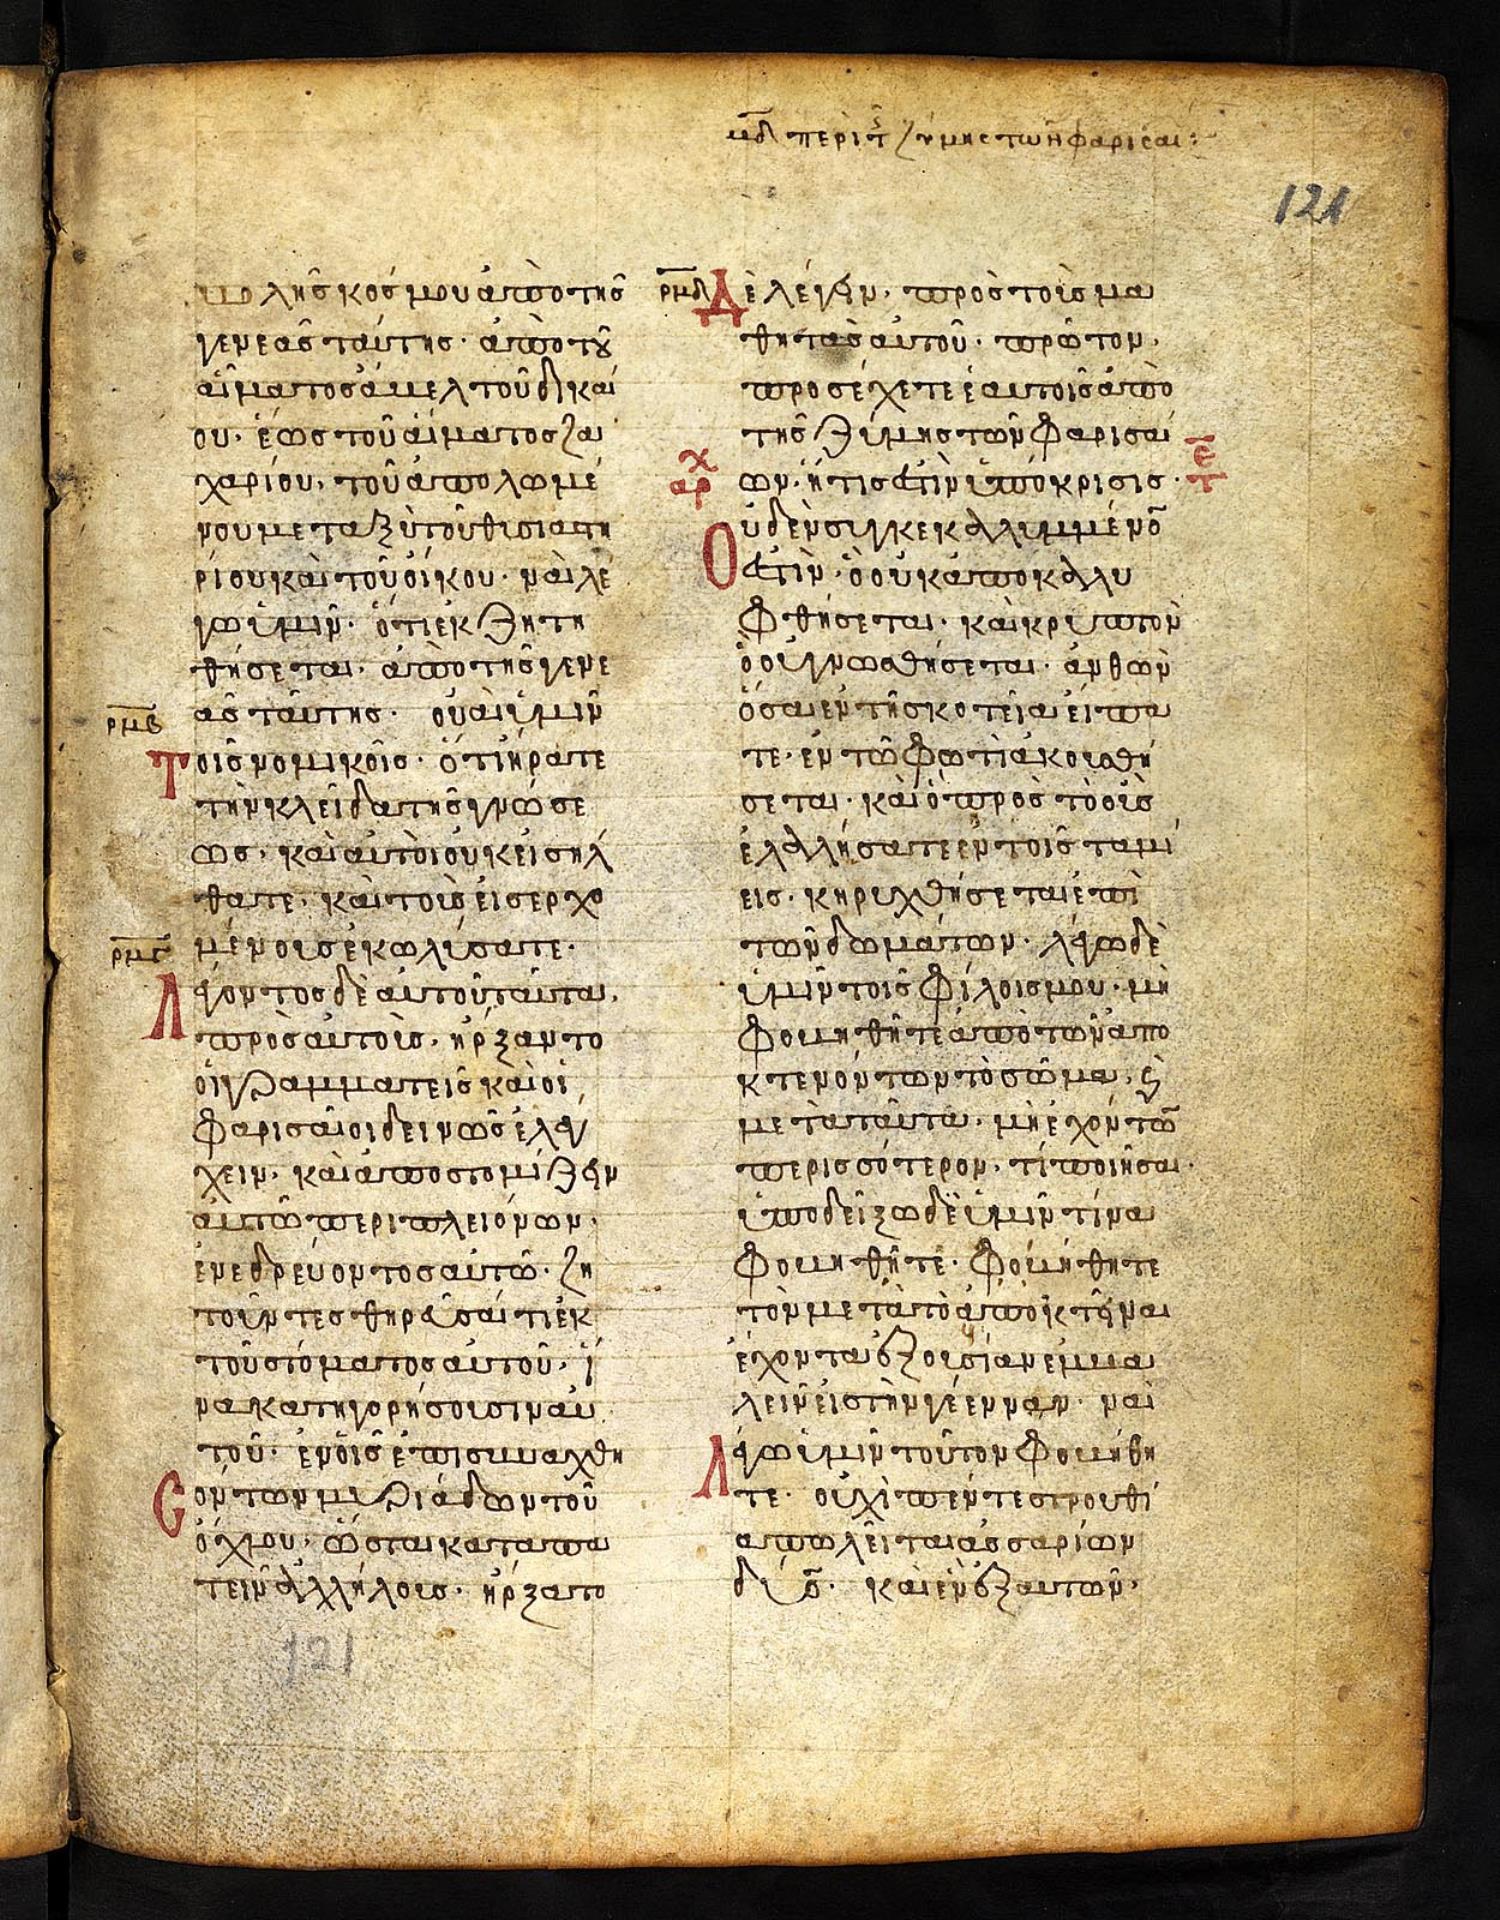 μδ περὶ τ ζύμης τῶν φαρισαι:
121
βολῆς κόσμου ἀπὸ τῆς
γενεᾶς ταύτης· ἀπὸ τȣ
αἵματος ἄβελ τοῦ δικαί
ου· ἕως τοῦ αἵματος ζα
χαρίου, τοῦ ἀπολωμέ
νου μεταξὺ τοῦ θυσιαστη
ρίου καὶ τοῦ οἴκου· ναὶ λέ
γω ὑμῖν· ὅτι ἐκζητη
θήσεται· ἀπὸ τῆς γενε
ᾶς ταύτης· οὐαὶ ὑμῖν
ρμβ
τοῖς νομικοῖς· ὅτι ἤρατε
τὴν κλεῖδα τῆς γνώσε
ως· καὶ αὐτοὶ οὐκ εἰσήλ
θατε· καὶ τοὺς εἰσερχο
μένους ἐκωλύσατε·
ρμγ
Λέγοντος δὲ αὐτοῦ ταῦτα,
πρὸς αὐτοὺς, ἤρξαντο
οἱ γραμματεῖς καὶ οἱ
φαρισαῖοι δεινῶς ἐλέγ
χειν, καὶ ἀποστομίζειν
αὐτῶ περὶ πλειόνων·
ἐνεδρεύοντος αὐτῶ· ζη
τοῦντες θηρεῦσαί τι ἐκ
τοῦ στόματος αὐτοῦ, ἵ
να κατηγορήσουσιν αὐ
τοῦ· ἐν οἷς ἐπισυναχθη
Εόντων μυριάδων τοῦ
ὄχλου, ὥσται καταπα
τεῖν ἀλλήλους· ἤρξατο
ρμδ
Δὲ λέγειν, πρὸς τοὺς μα
θητὰς αὐτοῦ· πρῶτον,
προσέχετε ἑαυτοῖς ἀπὸ
τῆς ζύμης τῶν φαρισαί
ων· ἥτις ἐστὶν ὑπόκρισις·
αρχ
ετ
Οὐδὲν συγκεκαλλυμμένō
ἐστὶν· ὃ οὐκ ἀποκαλλυ
φθήσεται· καὶ κρυπτὸν
ὃ οὐ γνωσθήσεται· ἀνθ ὧν
ὅσα ἐν τῆ σκοτεία εἴπα
τε· ἐν τῶ φωτὶ ἀκουσθή
σεται· καὶ ὃ πρὸς τὸ οὖς
ἐλαλλήσατε ἐν τοῖς ταμί
εις· κηρυχθήσεται ἐπὶ
τῶν δωμάτων· λέγω δὲ
ὑμῖν τοῖς φίλοις μου· μὴ
φοβηθῆτε ἀπὸ τῶν ἀπο
κτενόντων τὸ σῶμα, ϗ
μετὰ ταῦτα, μὴ ἐχόντω̄
περισσότερον, τί ποιῆσαι·
ὑποδείξω δὲ ὑμῖν τίνα
φοβηθῆτε· φοβήθητε
τὸν μετὰ τὸ ἀποκτεῖναι
ἔχοντα ἐξουσίαν ἐμβα
λεῖν εἰς τὴν γέενναν· ναὶ
Λέγω ὑμῖν τοῦτον φοβήθη
τε· οὐχὶ πέντε στρουθί
α πωλεῖται ἀσσαρίων
δύο· καὶ ἓν ἐξ αὐτῶν,
121